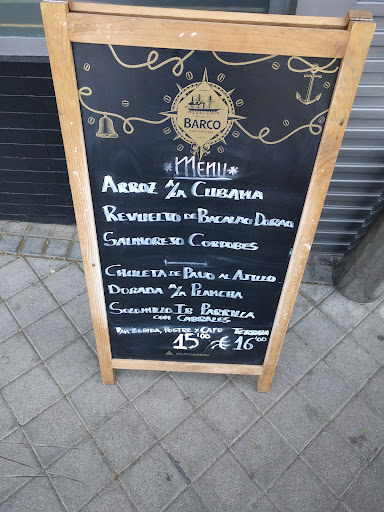 BARCO
*MENU*
ARROZ A/LA CUBANA
REVUELTO DE BACALAO DORAO
SALMOREJO CORDOBES
CHULETA DE PAVO AL AJILLO
DORADA A/LA PLANCHA
SOLOMILLO IB PARRILLA
CON CABRALES
PAN, BEBIDA, POSTRE Y CAFE TERRAZA
15'00 € 16'00